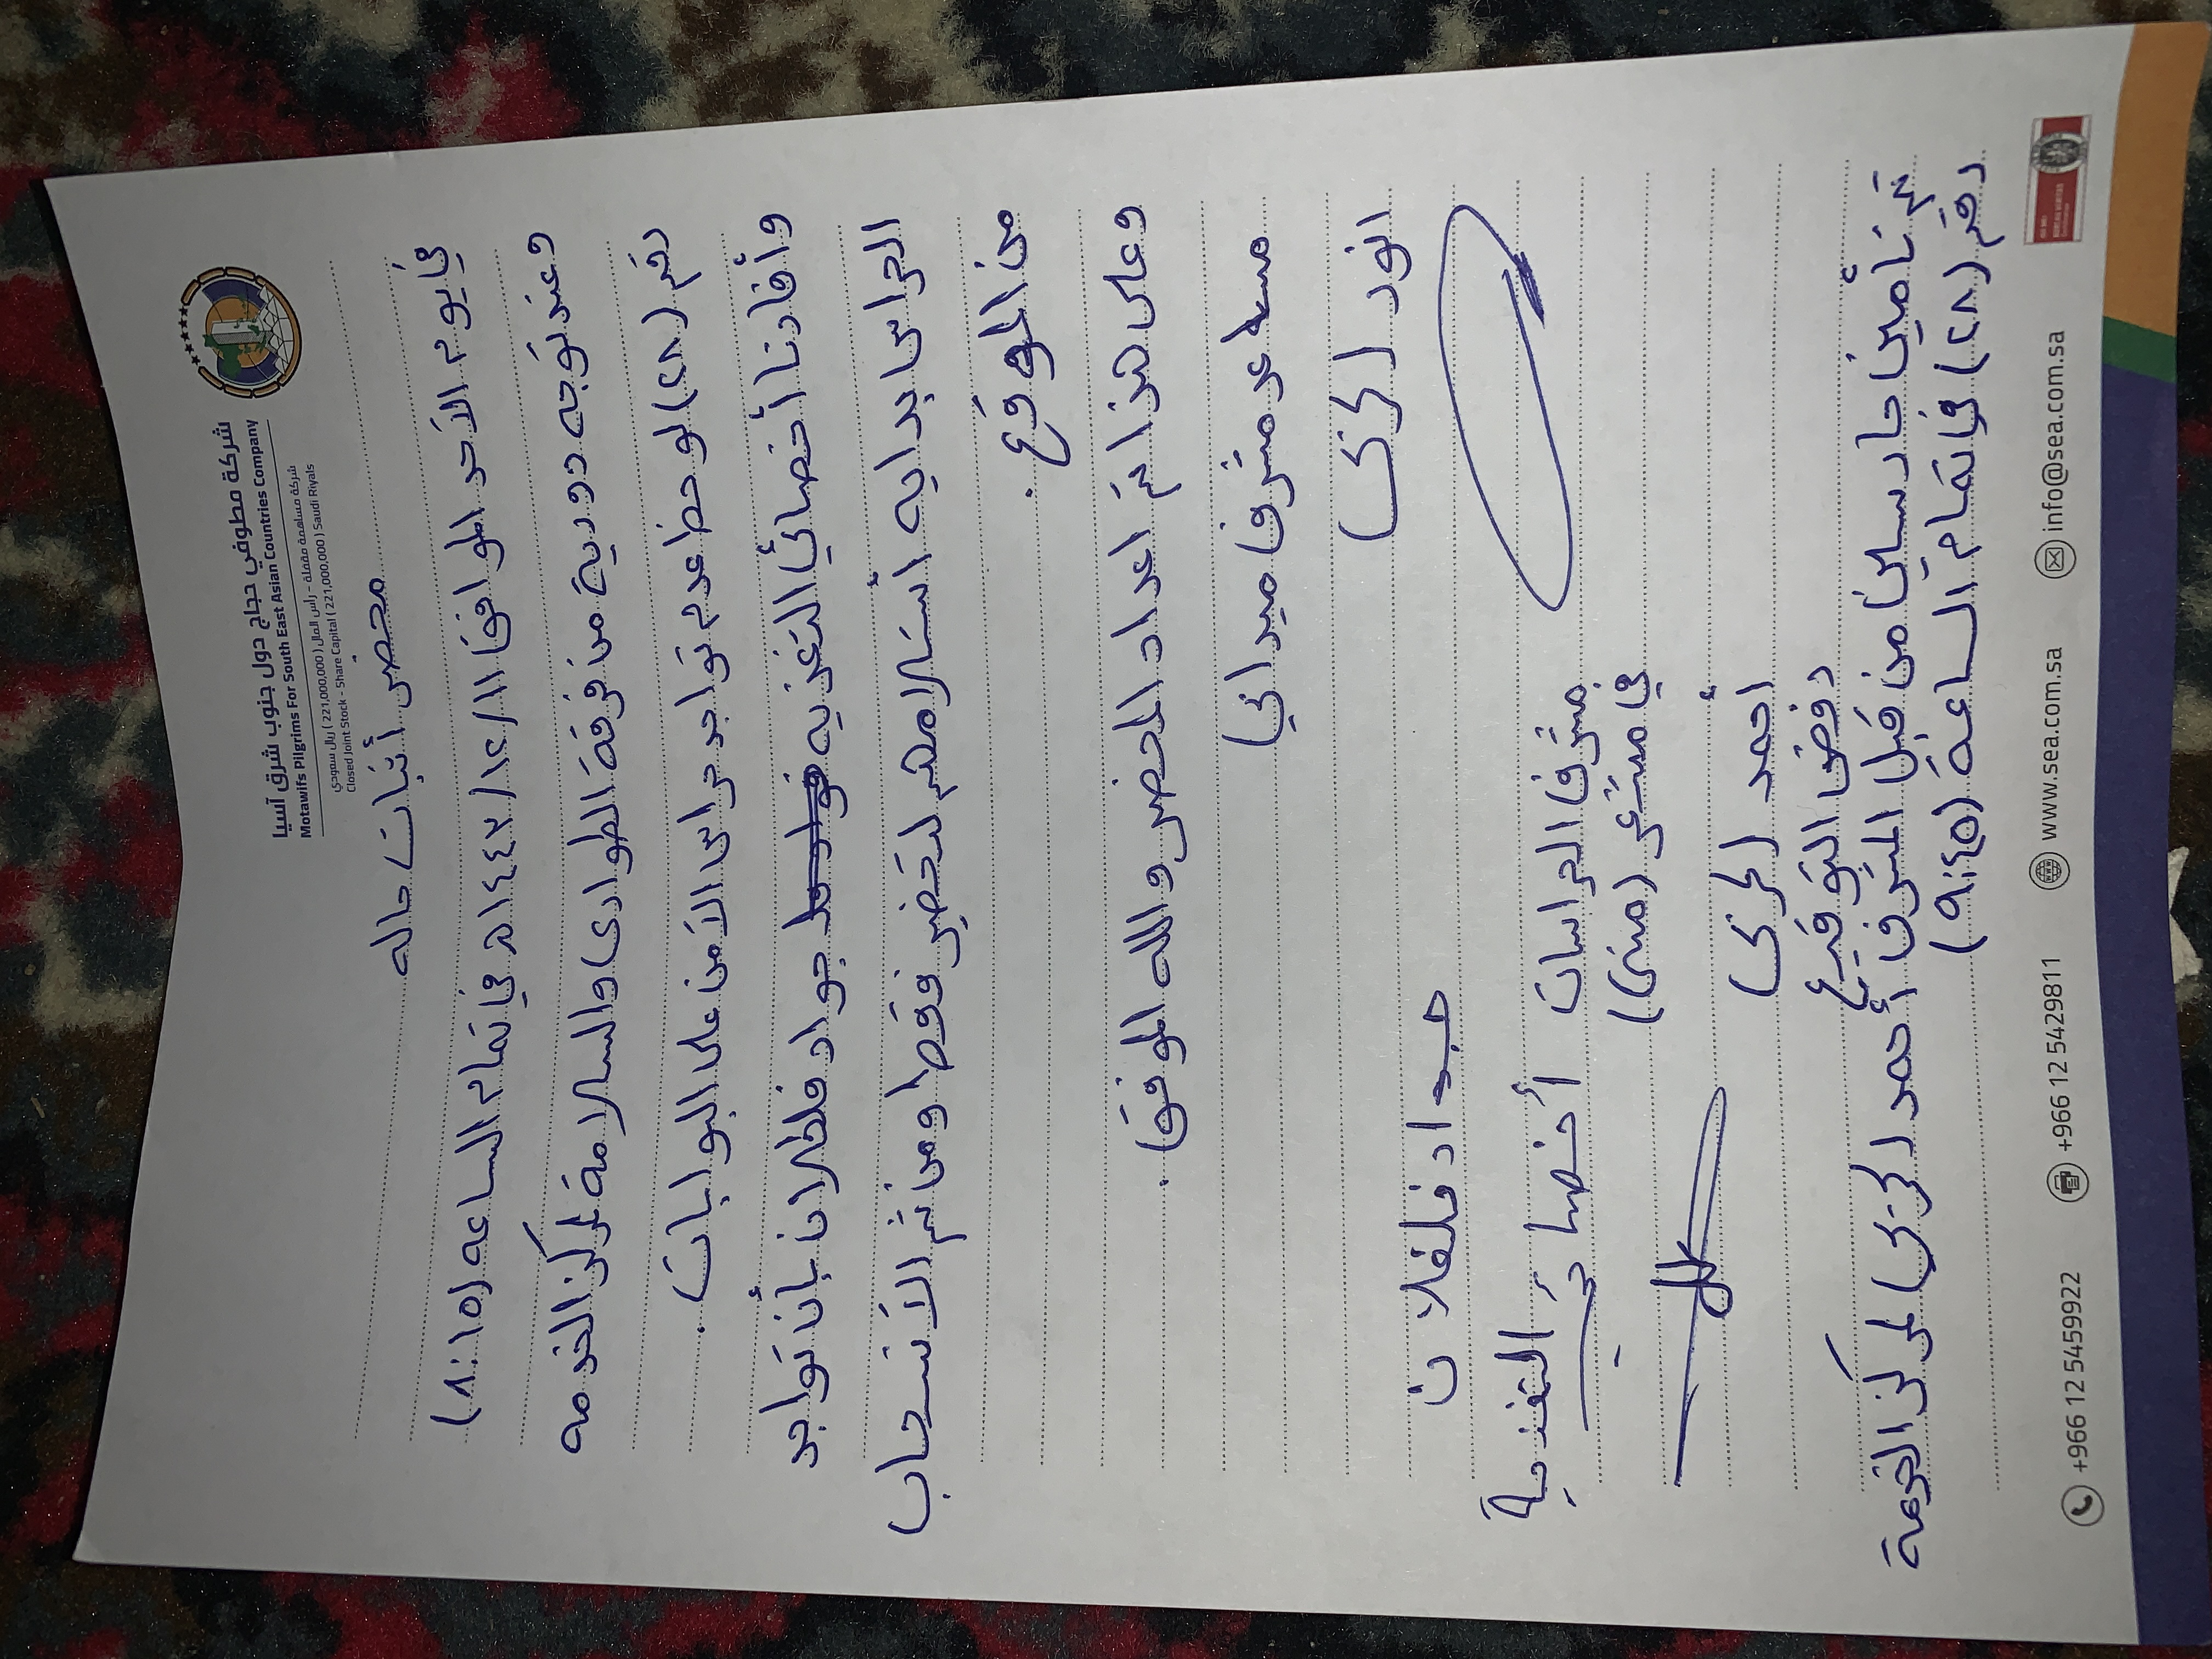 شركة مطوفي حجاج دول جنوب شرق آسيا
Motawifs Pilgrims For South East Asian Countries Company
شركة مساهمة مقفلة - رأس المال ( 221,000,000 ) ريال سعودي
Closed Joint Stock - Share Capital ( 221,000,000 ) Saudi Riyals
محضر أثبات حاله
في يوم الأحد الموافق ١٤٤٣/١٢/١١هـ في تمام الساعه (٨:١٥)
وعند توجه دورية من فرقة الطوارى والسلامة لمركز الخدمه
رقم (٢٨) لوحظ عدم تواجد حراس الأمن على البوابات .
وأفادنا أخصائي التغذيه جواد فلفلان بأن تواجد
الحراس بدايه أستلامهم لتحضير فقط ومن ثم الأنسحاب
من الموقع .
وعلى هذا تم اعداد المحضر والله الموفق .
مساعد مشرف ميداني
انور
جواد فلفلان
أخصائي التغذية
مشرف الحراسات
في مشعر (منى)
أحمد
رفض التوقيع
تم تأمين حارسين من قبل المشرف أحمد لمركز الخدمة
رقم (٢٨) في تمام الساعة (٩:٤٥)
+966 12 5459922
+966 12 5429811
www.sea.com.sa
info@sea.com.sa
BUREAU VERITAS